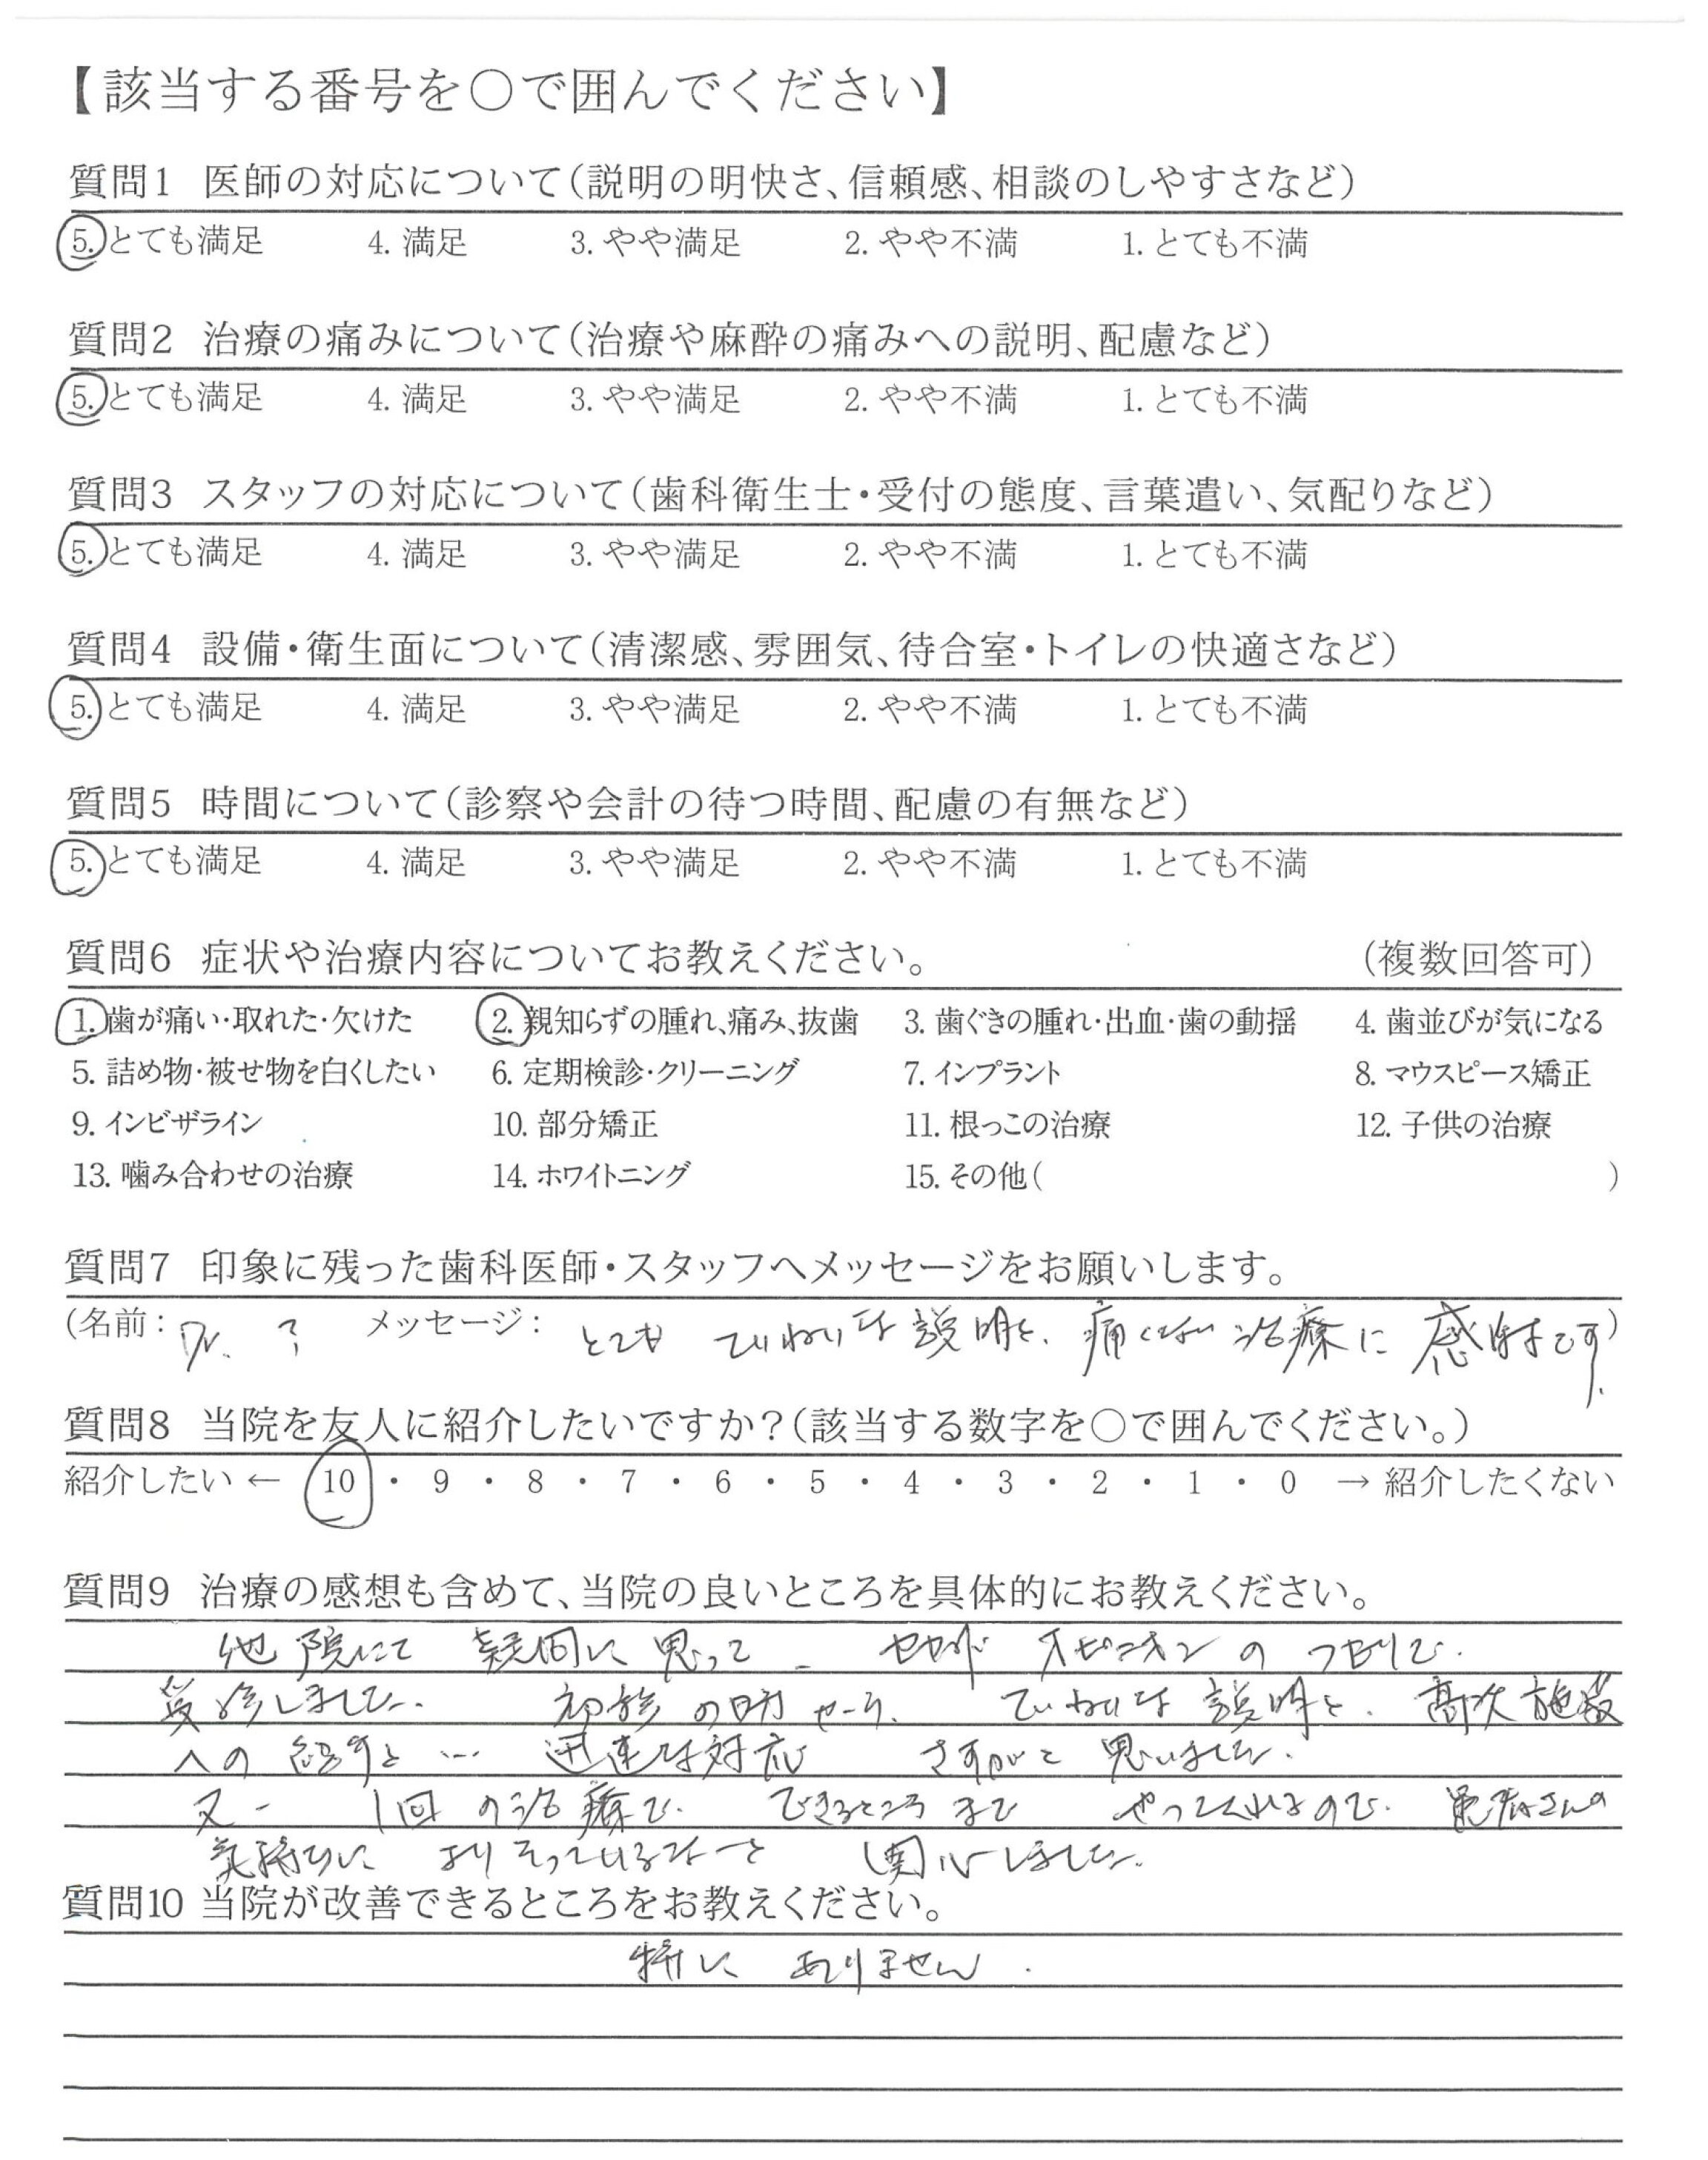 【該当する番号を○で囲んでください】
質問1 医師の対応について(説明の明快さ、信頼感、相談のしやすさなど)
5. とても満足 4. 満足 3. やや満足 2. やや不満 1. とても不満
質問2 治療の痛みについて(治療や麻酔の痛みへの説明、配慮など)
5. とても満足 4. 満足 3. やや満足 2. やや不満 1. とても不満
質問3 スタッフの対応について(歯科衛生士・受付の態度、言葉遣い、気配りなど)
5. とても満足 4. 満足 3. やや満足 2. やや不満 1. とても不満
質問4 設備・衛生面について(清潔感、雰囲気、待合室・トイレの快適さなど)
5. とても満足 4. 満足 3. やや満足 2. やや不満 1. とても不満
質問5 時間について(診察や会計の待つ時間、配慮の有無など)
5. とても満足 4. 満足 3. やや満足 2. やや不満 1. とても不満
質問6 症状や治療内容についてお教えください。 (複数回答可)
1. 歯が痛い・取れた・欠けた 2. 親知らずの腫れ、痛み、抜歯 3. 歯ぐきの腫れ・出血・歯の動揺 4. 歯並びが気になる
5. 詰め物・被せ物を白くしたい 6. 定期検診・クリーニング 7. インプラント 8. マウスピース矯正
9. インビザライン 10. 部分矯正 11. 根っこの治療 12. 子供の治療
13. 噛み合わせの治療 14. ホワイトニング 15. その他( )
質問7 印象に残った歯科医師・スタッフへメッセージをお願いします。
(名前: Dr. ? メッセージ: とても ていねいな説明と、痛くない治療に感謝です)
質問8 当院を友人に紹介したいですか?(該当する数字を○で囲んでください。)
紹介したい ← 10 ・ 9 ・ 8 ・ 7 ・ 6 ・ 5 ・ 4 ・ 3 ・ 2 ・ 1 ・ 0 → 紹介したくない
質問9 治療の感想も含めて、当院の良いところを具体的にお教えください。
他院にて 疑問に思って セカンド オピニオン の つもりで.
受診しました. 初診の時から、 ていねいな説明と、高次施設
への紹介と… 迅速な対応 さすがと思いました.
又 1回の治療で できるところまで やってくれるので 患者さんの
気持ちに よりそっているなーと 関心しました.
質問10 当院が改善できるところをお教えください。
特に ありません.